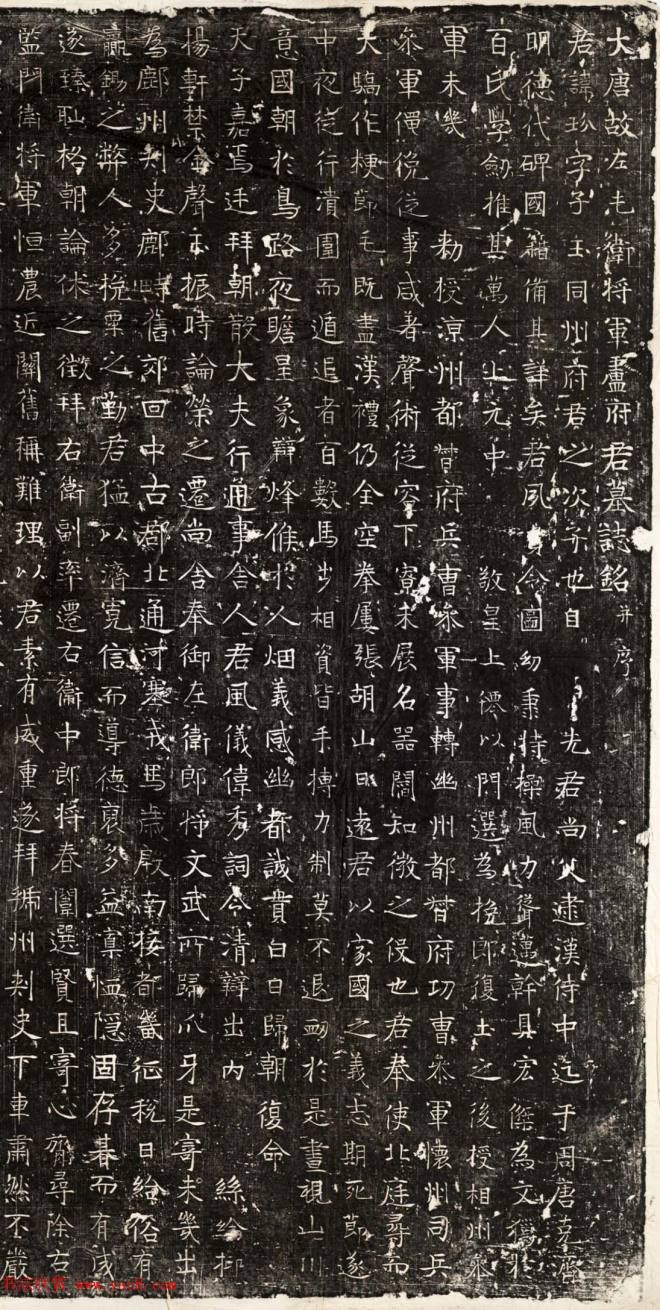 大唐故左屯衛將軍盧府君墓誌銘并序
君諱玢字子玉同州府君之次子也自 先君尚父逮漢侍中迄于周唐克濟
明德代碑國籍備其詳矣君夙 含 幼秉特操風力聳邁幹具宏傑為文獨
百氏學劍推其萬人上元中 敬皇上僊以門選為挽郎復土之後授相州參
軍未幾 勑授涼州都督府兵曹參軍事轉幽州都督府功曹參軍懷州司兵
參軍僶俛從事咸著聲術從容下寮未展名器闇知微之役也君奉使北庭尋而
大驕作梗節毛既盡漢禮仍全空拳屢張胡山日遠君以家國之義志期死節遂
中夜從行潰圍而遁追者百數馬步相資皆手搏力制莫不退衂於是晝視山川
意國朝於鳥路夜瞻星象辯烽候於人烟義感幽都誠貫白日歸朝復命
天子嘉焉廷拜朝散大夫行通事舍人君風儀偉秀詞令清辯出內 絲綸抑
揚軒禁金聲玉振時論榮之遷尚舍奉御左衛郎將文武所歸爪牙是寄未幾出
為鄜州刺史鄜畤舊郊回中古郡北通河塞戎馬歲殷南接都畿征稅日給俗有
羸錫之弊人多挽粟之勤君猛以濟寬信而導德裒多益寡恤隱固存朞而有成
遂臻恥格朝論休之徵拜右衛副率遷右衛中郎將春闈選賢且寄心膂尋除右
監門衛將軍恒農近關舊稱難理以君素有威重遂拜虢州刺史下車肅然不嚴
书法欣赏 www.yac8.com